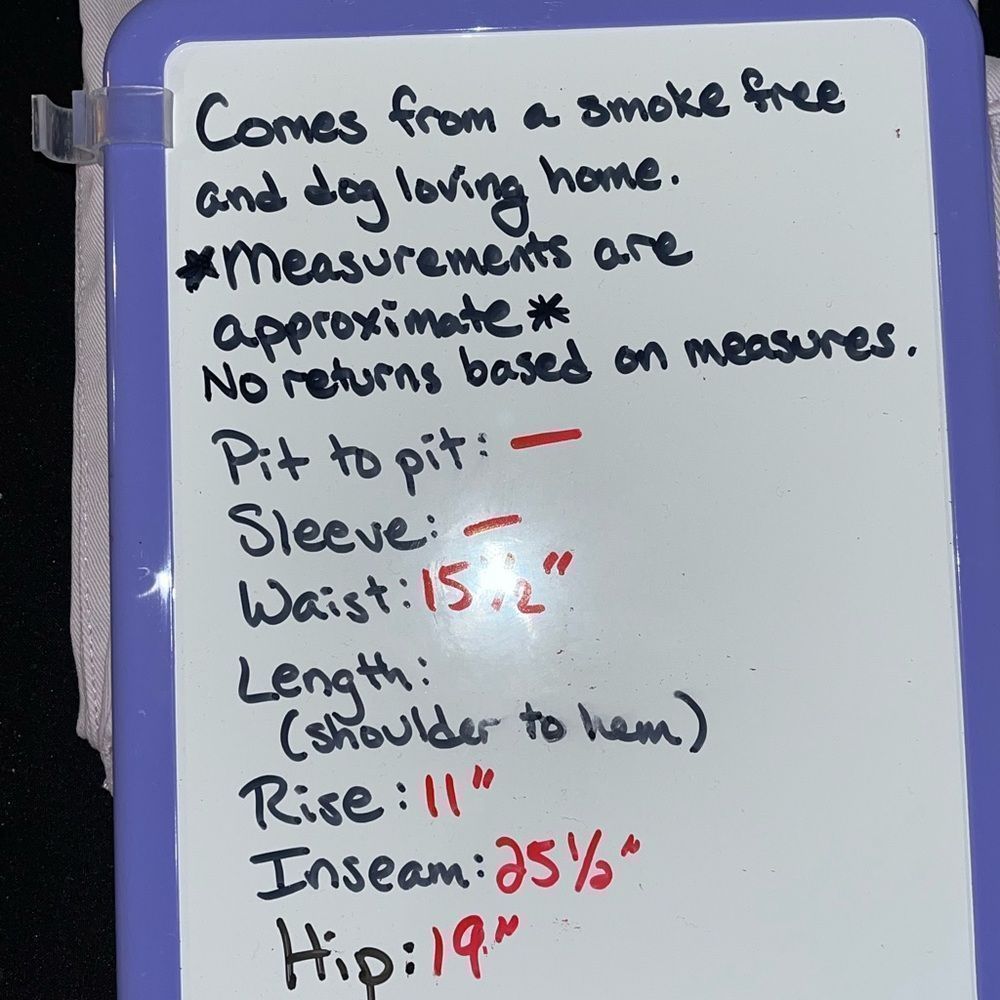 Comes from a smoke free
and dog loving home.
*Measurements are
approximate*
No returns based on measures.
Pit to pit: —
Sleeve: —
Waist: 15 1/2"
Length:
(shoulder to hem)
Rise: 11"
Inseam: 25 1/2"
Hip: 19"